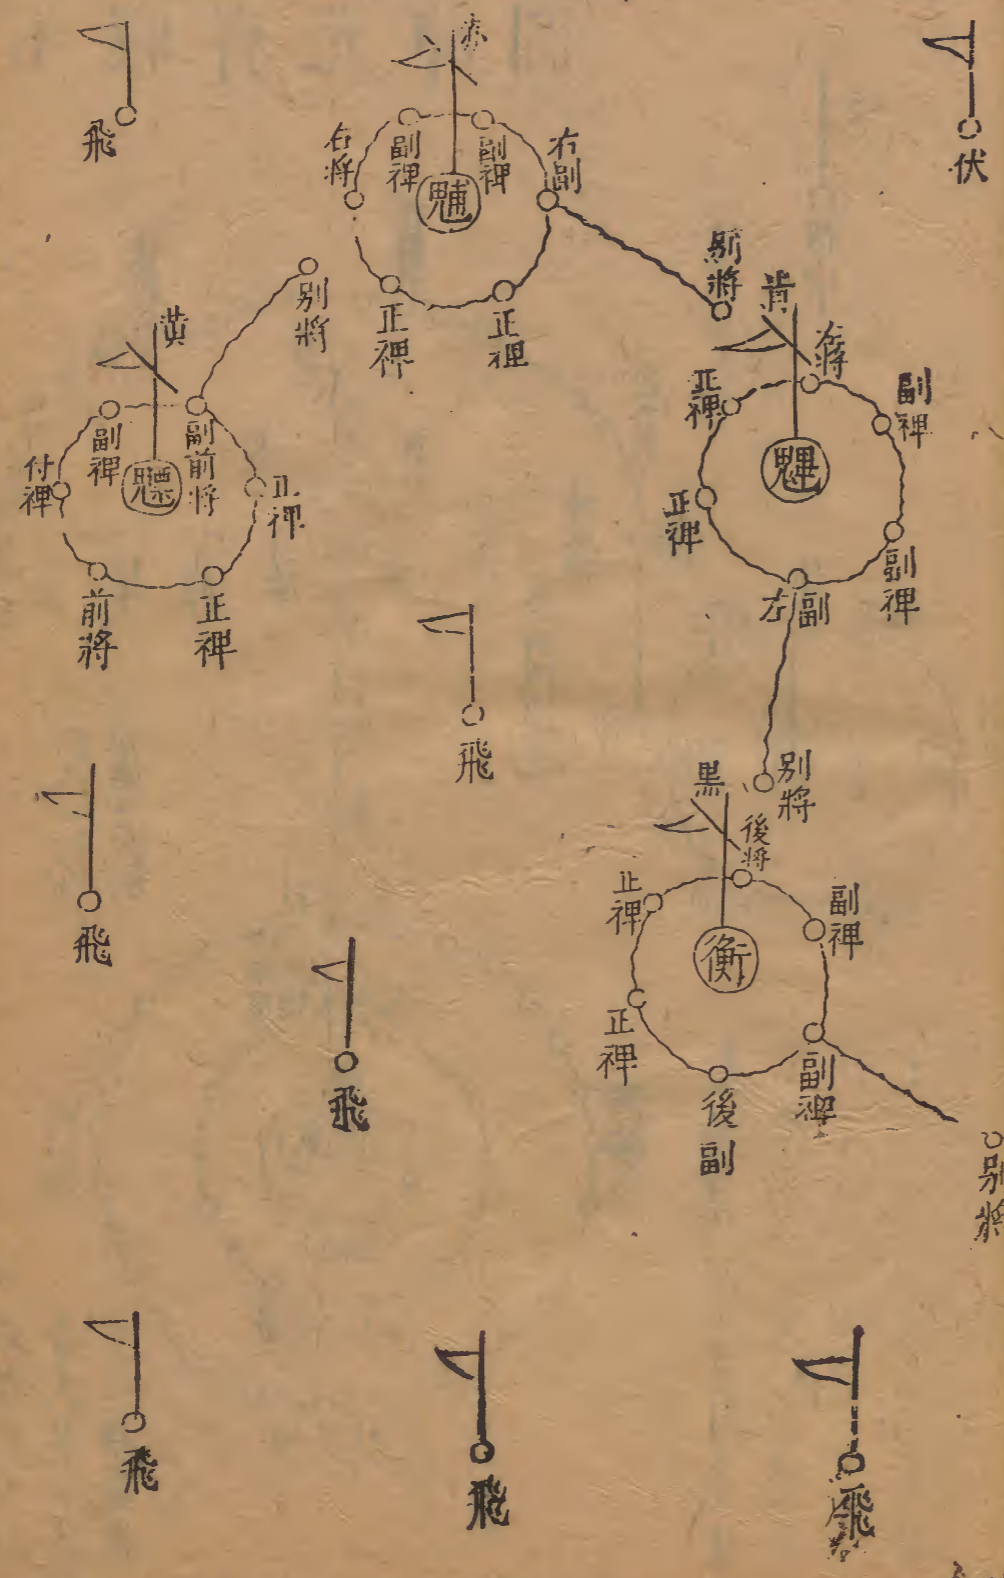 伏
飛
赤
右將
副裨
副裨
右副
魓
正裨
正裨
別將
別將
黄
副裨
副前將
付裨
正裨
前將
正裨
正裨
副裨
正裨
副裨
左副
別將
黒
後將
正裨
副裨
衡
正裨
副裨
後副
別將
飛
飛
飛
飛
飛
飛